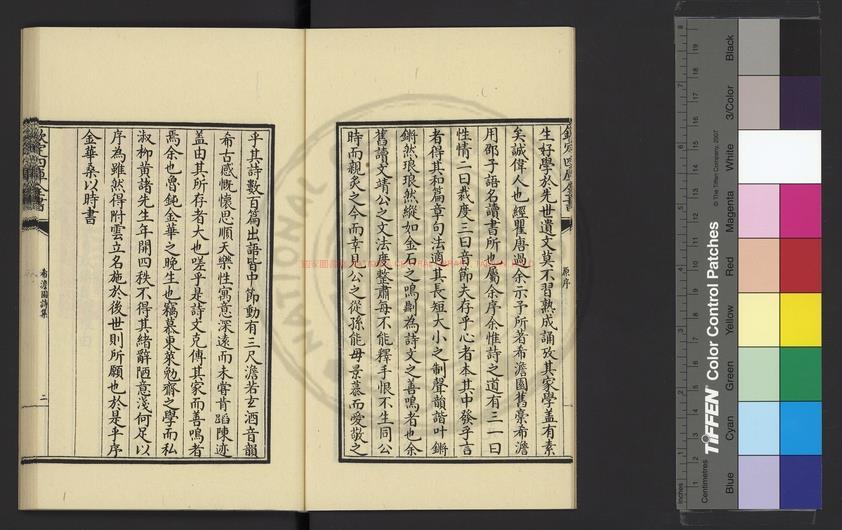 生好學於先世遺文莫不習熟成誦攷其家學蓋有素
矣誠偉人也經瞿唐過余示予所著希澹園舊稾希澹
用邵子語名讀書所也屬余序余惟詩之道有三一曰
性情二曰裁度三曰音節夫存乎心者本其中發乎言
者得其和篇章句法適其長短大小之制聲韻諧叶鏘
鏘然琅琅然縱如金石之鳴斯為詩文之善鳴者也余
舊讀文靖公之文法度整肅每不能釋手恨不生同公
時而親炙之今而幸見公之從孫能毋景慕而愛敬之
原序
乎其詩數百篇出語皆中節動有三尺澹若玄酒音韻
希古感慨懷思順天樂性寓意深遠而未嘗肯蹈陳迹
蓋由其所存者大也嗟乎是詩文克傳其家而善鳴者
焉余也魯鈍金華之晚生也竊慕東萊勉齋之學而私
淑柳黄諸先生年開四秩不得其緒辭陋意淺何足以
序為雖然得附雲立名施於後世則所願也於是乎序
金華桑以時書
欽定四庫全書
希澹園詩集
二
Black
3/Color
White
Magenta
Red
Yellow
Green
Cyan
Blue
TIFFEN Color Control Patches
© The Tiffen Company, 2007
Centimetres
Inches